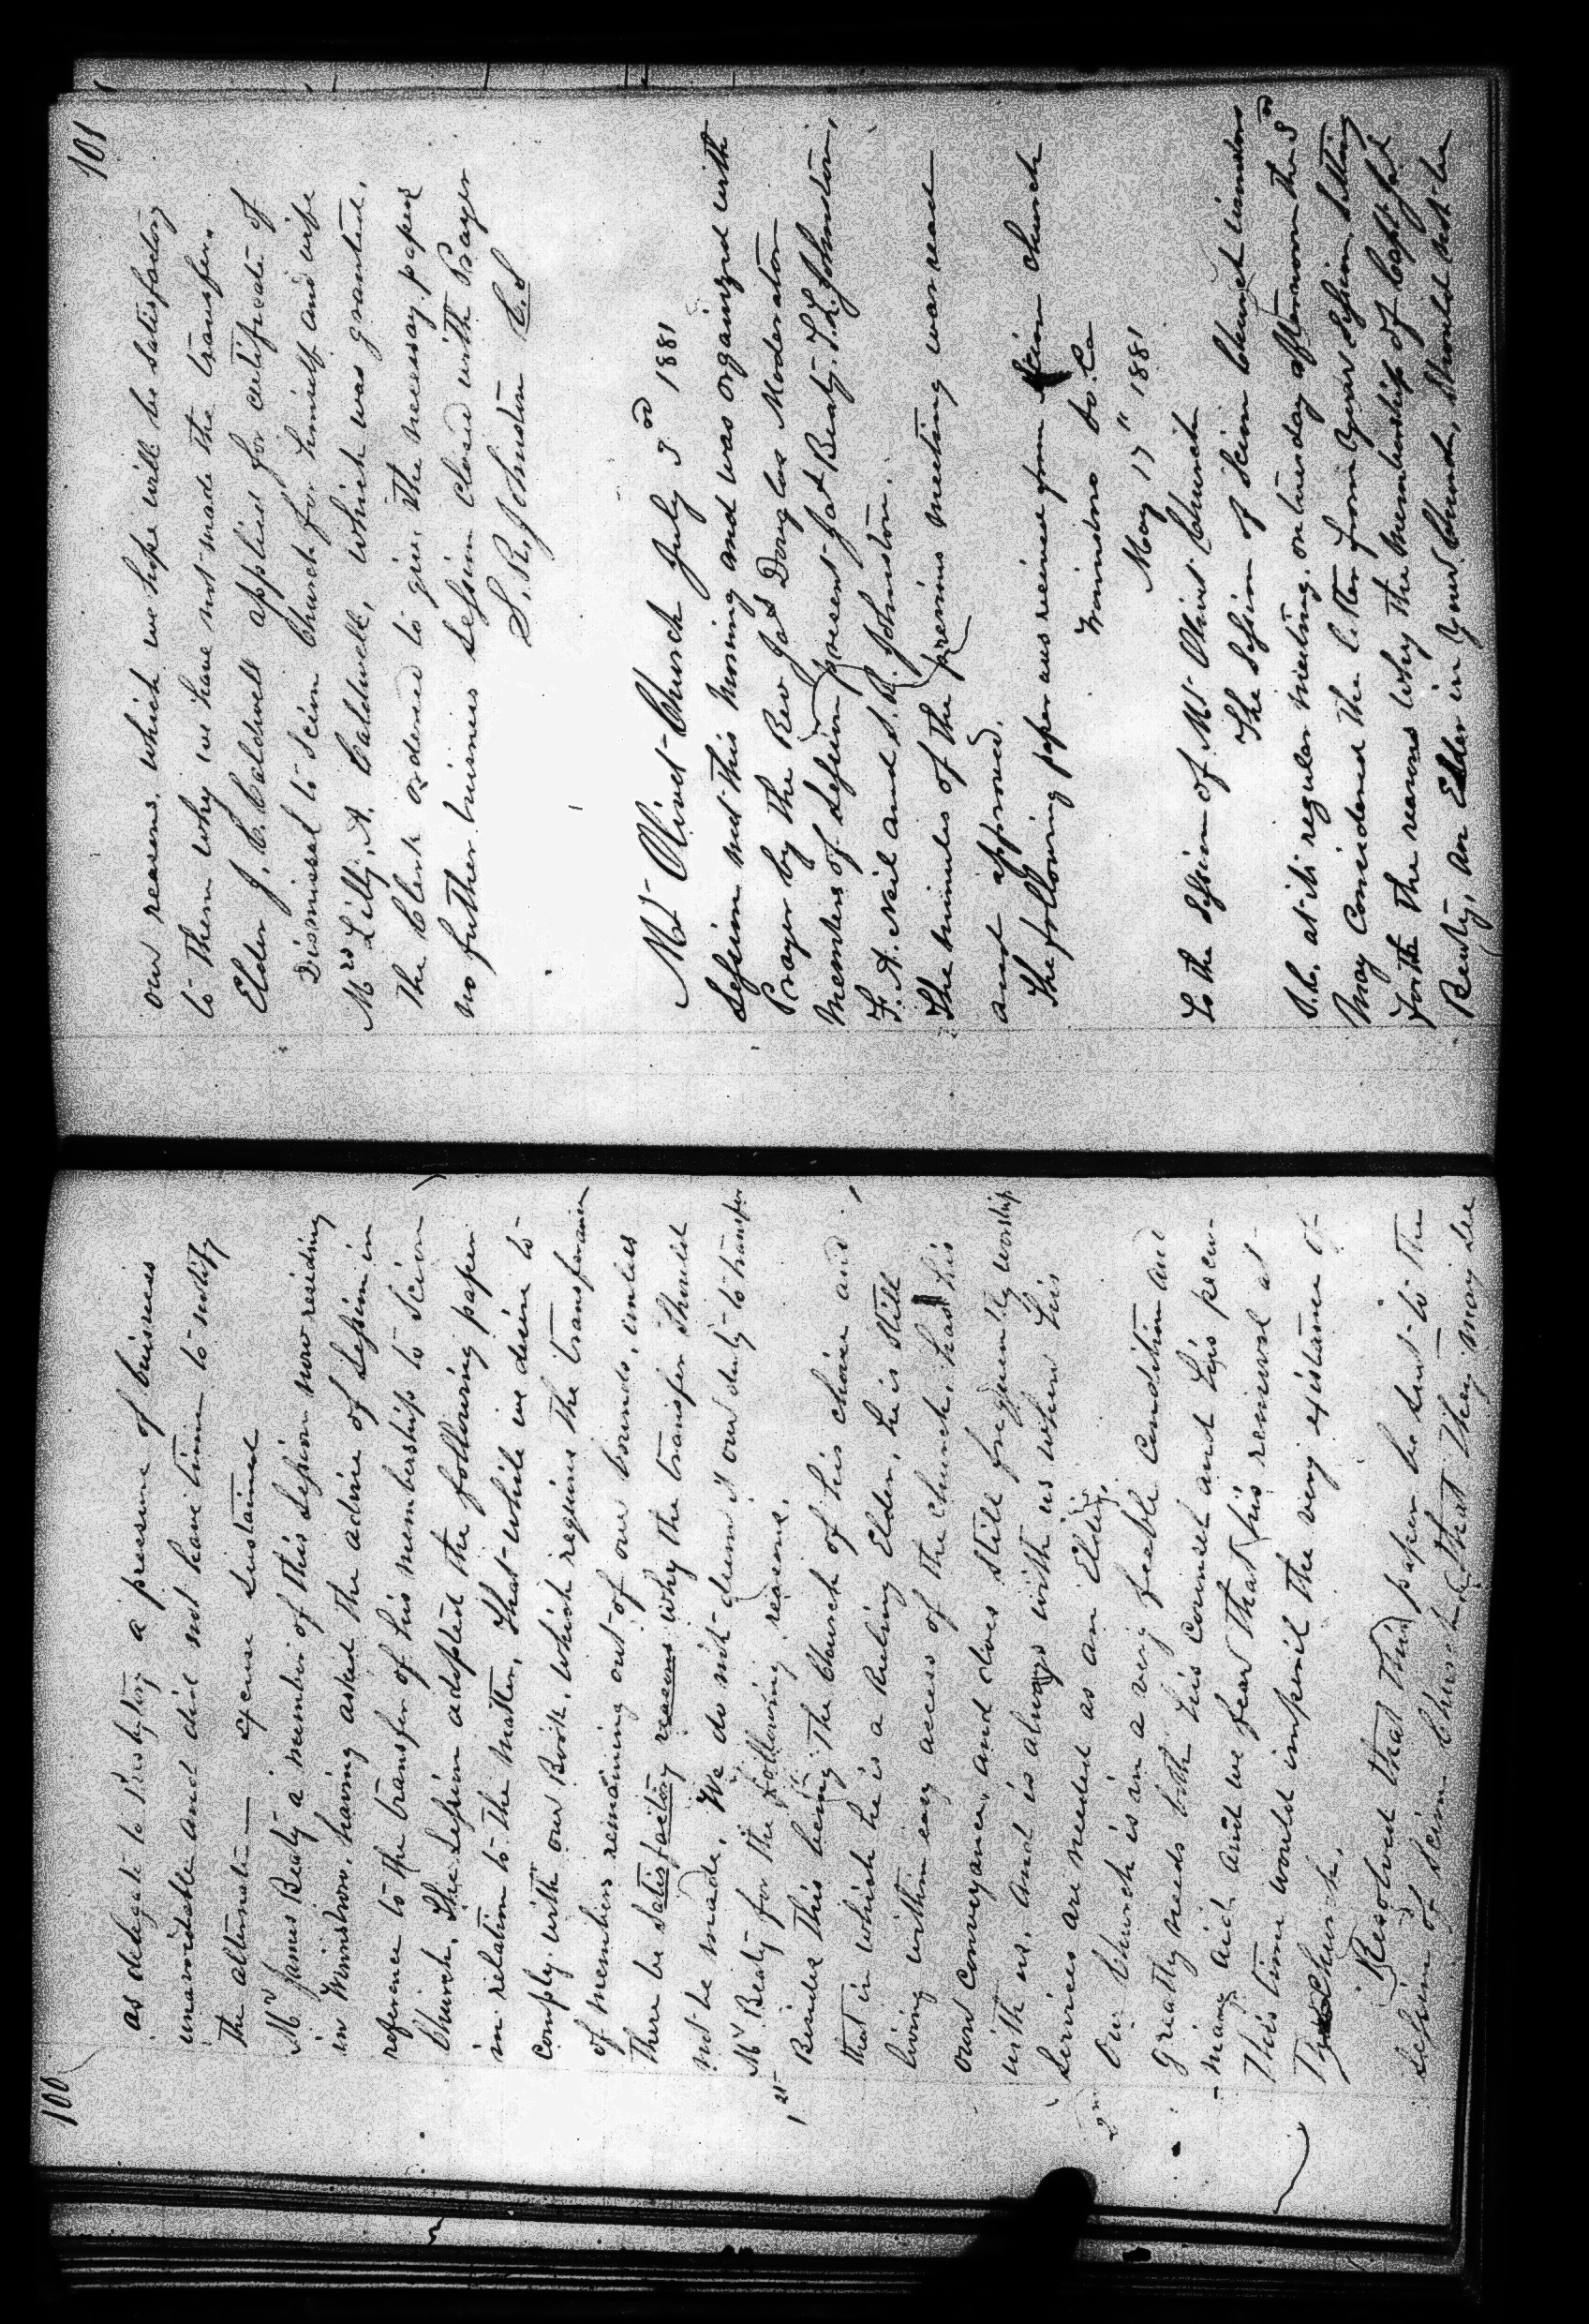 100
as delegate to Presbytery a pressure of business
unavoidable and did not have time to notify
the alternate — excuse sustained
Mr James Beaty a member of this Session now residing
in Winnsboro, having asked the advice of Session in
reference to the transfer of his membership to Scion
Church. The Session adopted the following paper
in relation to the matter, That while we desire to
comply with our Book, which requires the transferance
of members remaining out of our bounds, unless
there be satisfactory reasons why the transfer should
not be made, We do not deem it our duty to transfer
Mr Beaty for the following reasons.
1st Besides this being the Church of his choice and
that in which he is a Ruling Elder, he is still
living within easy access of the church, has his
own conveyance, and does still frequently worship
with us, and is always with us when his
services are needed as an Elder.
2nd Our Church is in a very feeble condition and
greatly needs both his counsel and his pecu-
-niary aid and we fear that his removal at
this time would imperil the very existance of
The Church.
Resolved that this paper be sent to the
Session of Scion Church, that they may see
101
our reasons, which we hope will be satisfactory
to them why we have not made the transfer.
Elder J. C. Caldwell applied for certificate of
Dismissal to Scion Church for himself and wife
Mrs Lilly. A. Caldwell, which was granted.
The Clerk ordered to give the necessay papers
no futher business Session closed with Prayer
S. R. Johnston C.S
Mt Olivet Church July 3rd 1881
Session met this Morning and was organized with
Prayer by the Rev Jas Douglas Moderator
Members of Session present Jas Beaty. T. L. Johnston,
F. A. Neil and S. R. Johnston.
The minutes of the previous meeting was read
and approved.
The following paper was received from Scion church
Winnsboro So. Ca
May 17" 1881
To the Session of Mt Olivet Church
The Session of Scion Church Winnsboro
S.C. at its regular meeting, on tuesday afternoon the 3rd
May Considered the letter from Your Session setting
forth the reasons why the membership of Capt Jas
Beaty, an Elder in Your Church, should not be